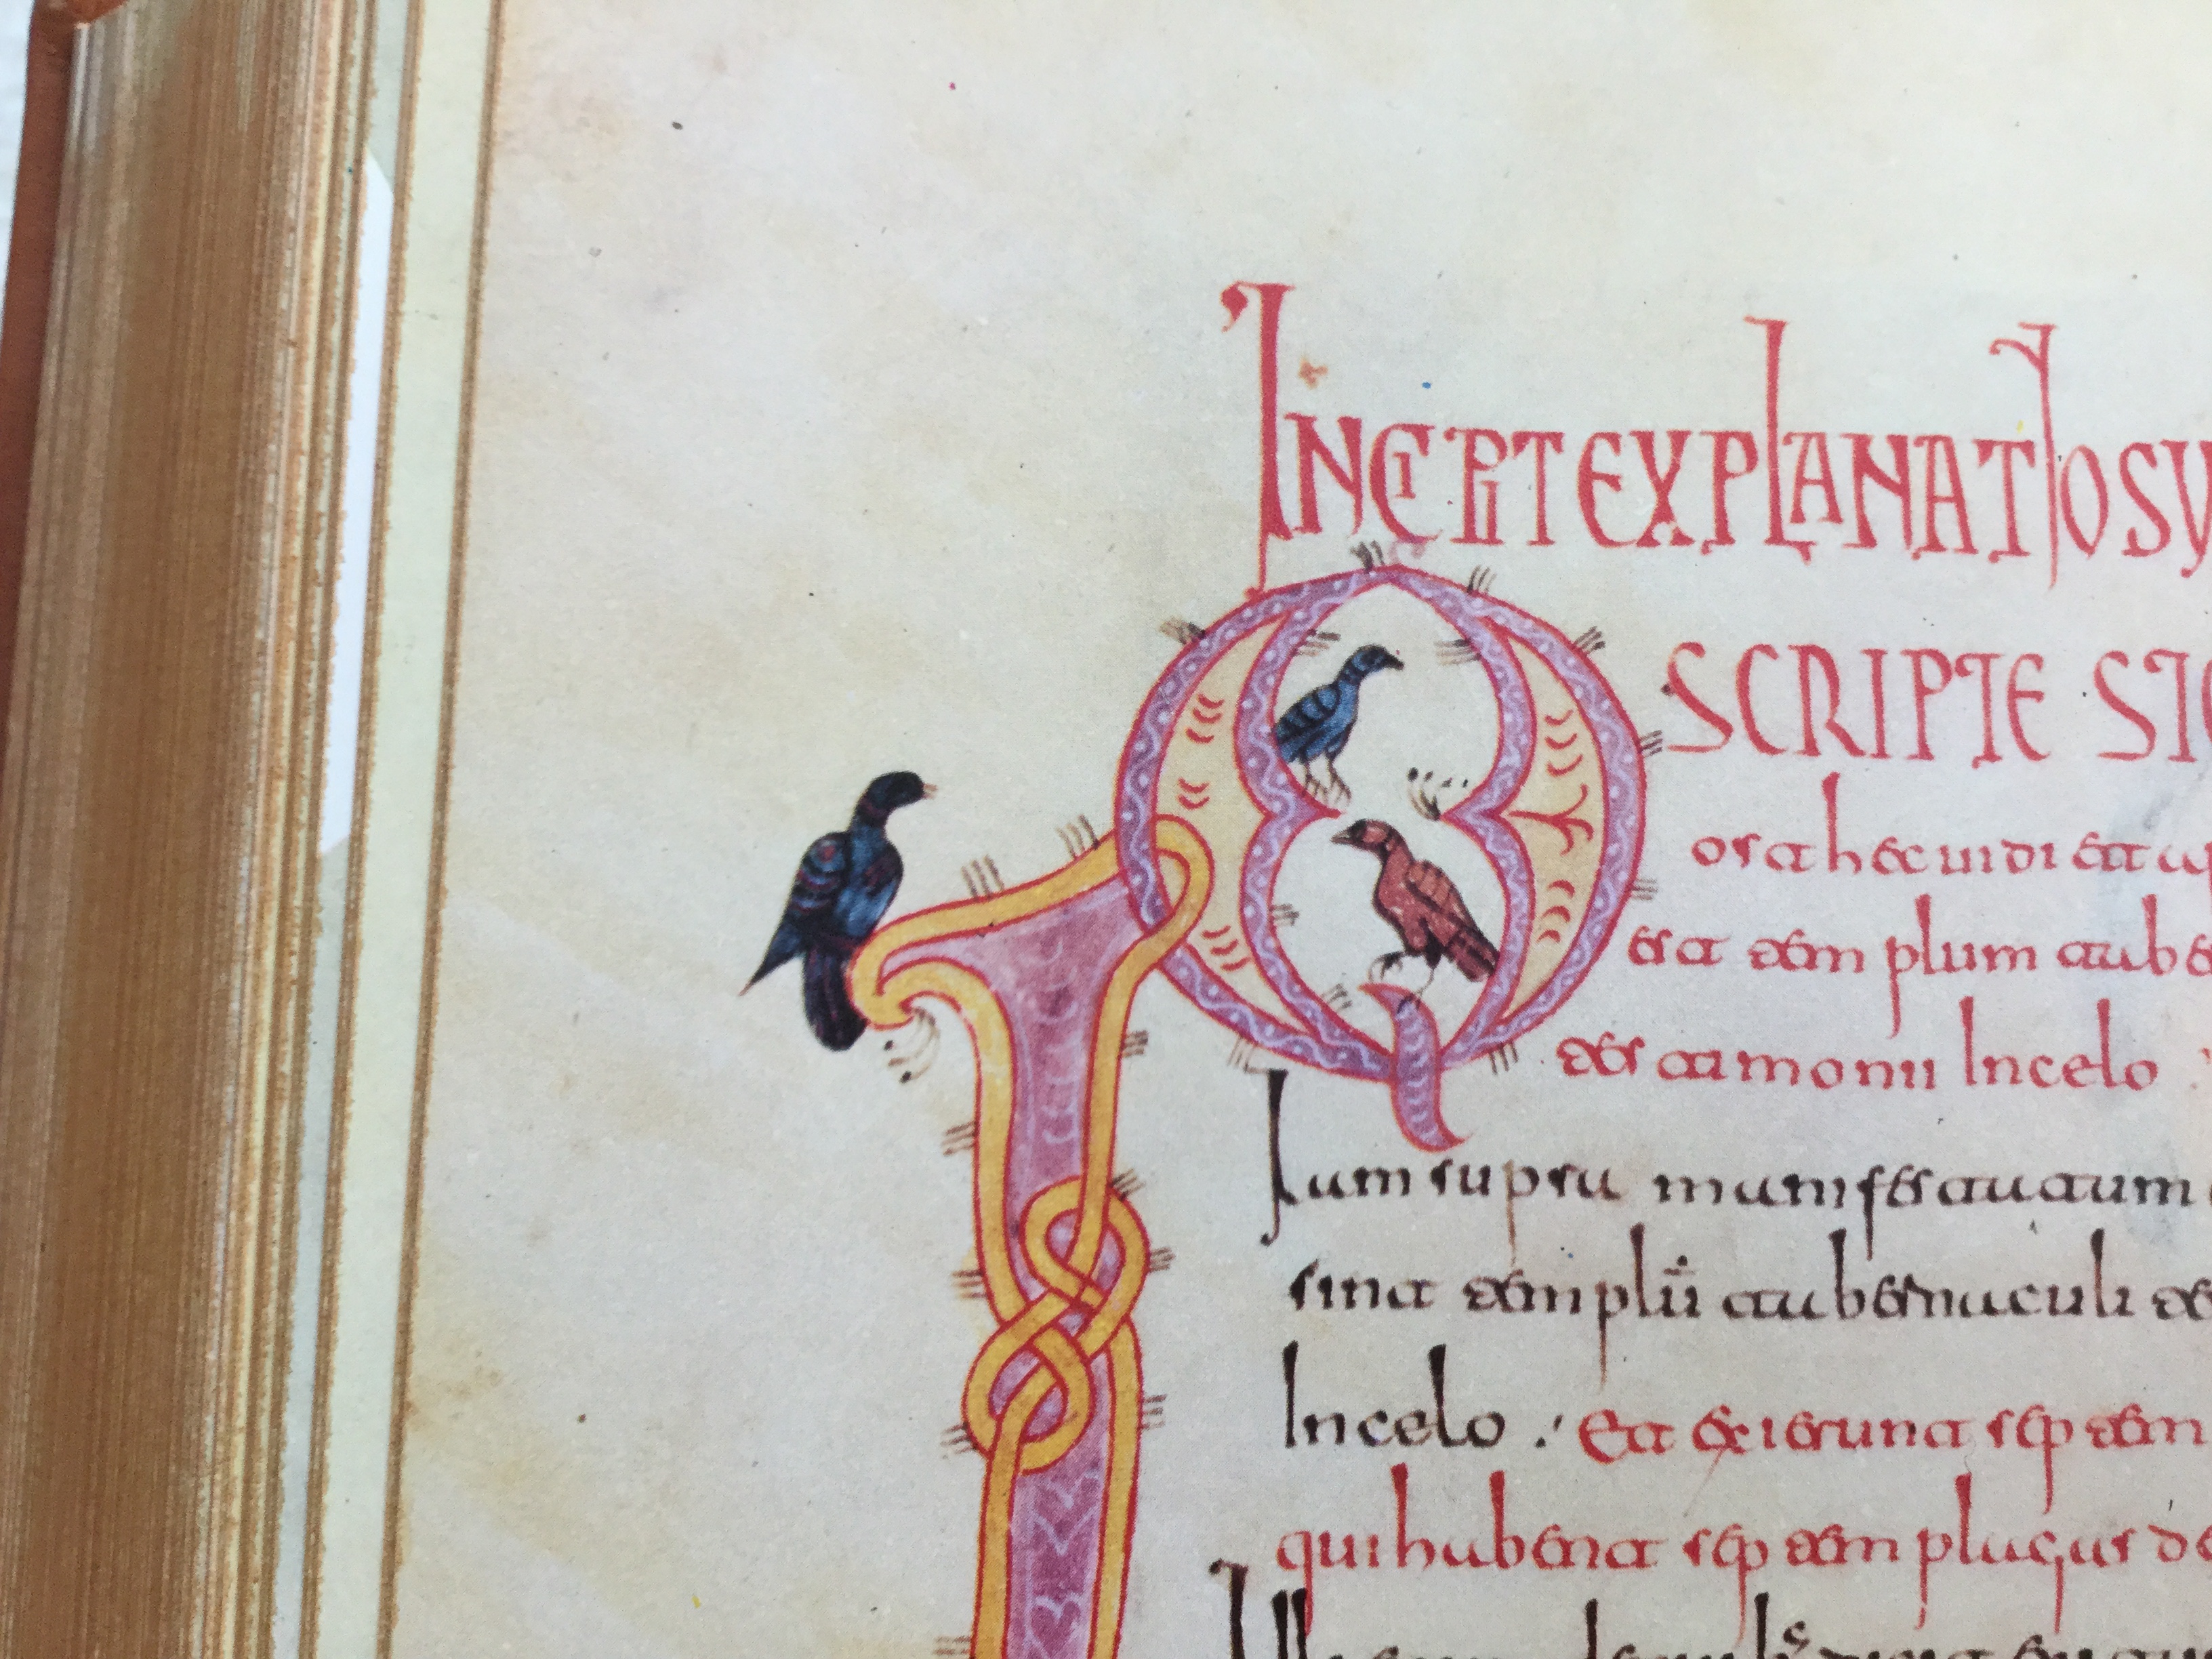 INCIPIT EXPLANATIO SU
SCRIPTE STO
P ost hec uidi et ap
est templum tabe
testimonii In celo
Iam supra manifestatum
sint templū tabernaculi te
In celo : Et exierunt sep tem
qui habent sep tem plagas de